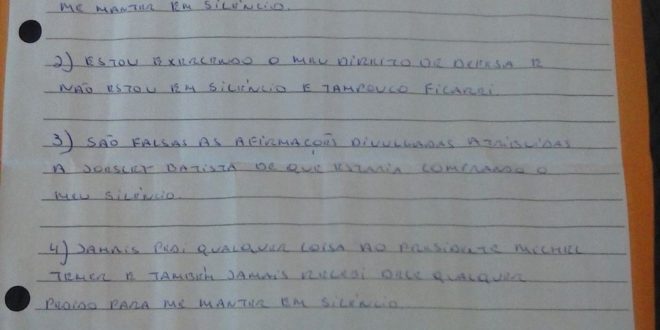 ME MANTER EM SILÊNCIO.
2) ESTOU EXERCENDO O MEU DIREITO DE DEFESA E
NÃO ESTOU EM SILÊNCIO E TAMPOUCO FICAREI
3) SÃO FALSAS AS AFIRMAÇÕES DIVULGADAS ATRIBUIDAS
A JOESLEY BATISTA DE QUE ESTARIA COMPRANDO O
MEU SILÊNCIO.
4) JAMAIS PEDI QUALQUER COISA AO PRESIDENTE MICHEL
TEMER E TAMBÉM JAMAIS RECEBI DELE QUALQUER
PEDIDO PARA ME MANTER EM SILÊNCIO